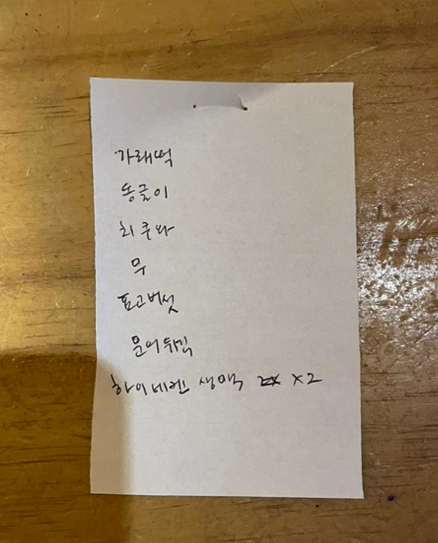 가래떡
동글이
치쿠와
무
표고버섯
문어튀김
하이네켄 생맥 x2